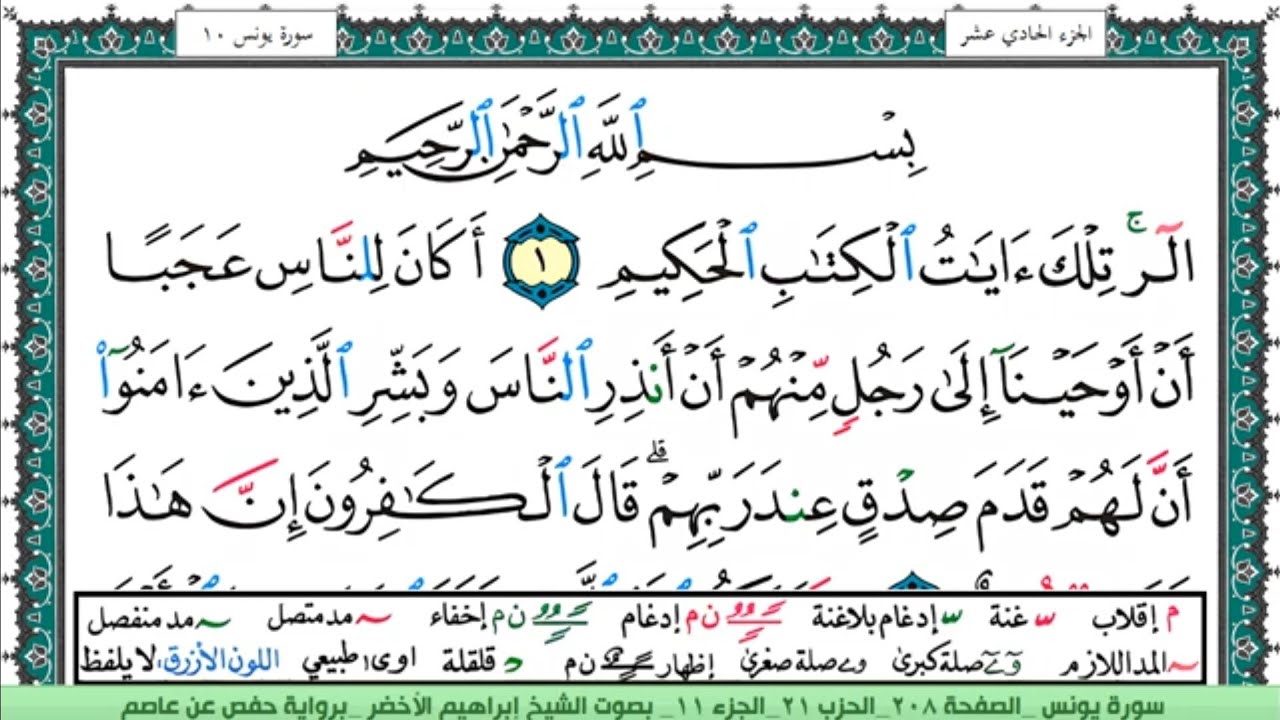 الجزء الحادي عشر
سورة يونس ١٠
بِسْمِ ٱللَّهِ ٱلرَّحْمَٰنِ ٱلرَّحِيمِ
الٓرۚ تِلْكَ ءَايَٰتُ ٱلْكِتَٰبِ ٱلْحَكِيمِ ١ أَكَانَ لِلنَّاسِ عَجَبًا
أَنْ أَوْحَيْنَآ إِلَىٰ رَجُلٍ مِّنْهُمْ أَنْ أَنذِرِ ٱلنَّاسَ وَبَشِّرِ ٱلَّذِينَ ءَامَنُوٓا۟
أَنَّ لَهُمْ قَدَمَ صِدْقٍ عِندَ رَبِّهِمْۗ قَالَ ٱلْكَٰفِرُونَ إِنَّ هَٰذَا
م إقلاب ـّ غنة ـّ إدغام بلاغنة ن م إدغام ن م إخفاء ~ مد متصل ~ مد منفصل
~ المد اللازم و ے صلة كبرى و ے صلة صغرى إظهار ن م د قلقلة اوى طبيعي اللون الأزرق، لا يلفظ
سورة يونس _الصفحة ٢٠٨_الحزب ٢١_الجزء ١١_ بصوت الشيخ إبراهيم الأخضر _برواية حفص عن عاصم